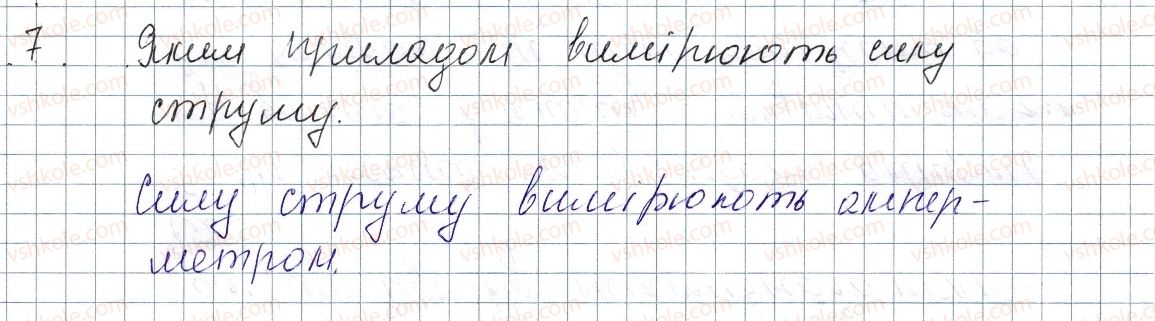 7. Яким приладом вимірюють силу
струму.
Силу струму вимірюють ампер-
метром.